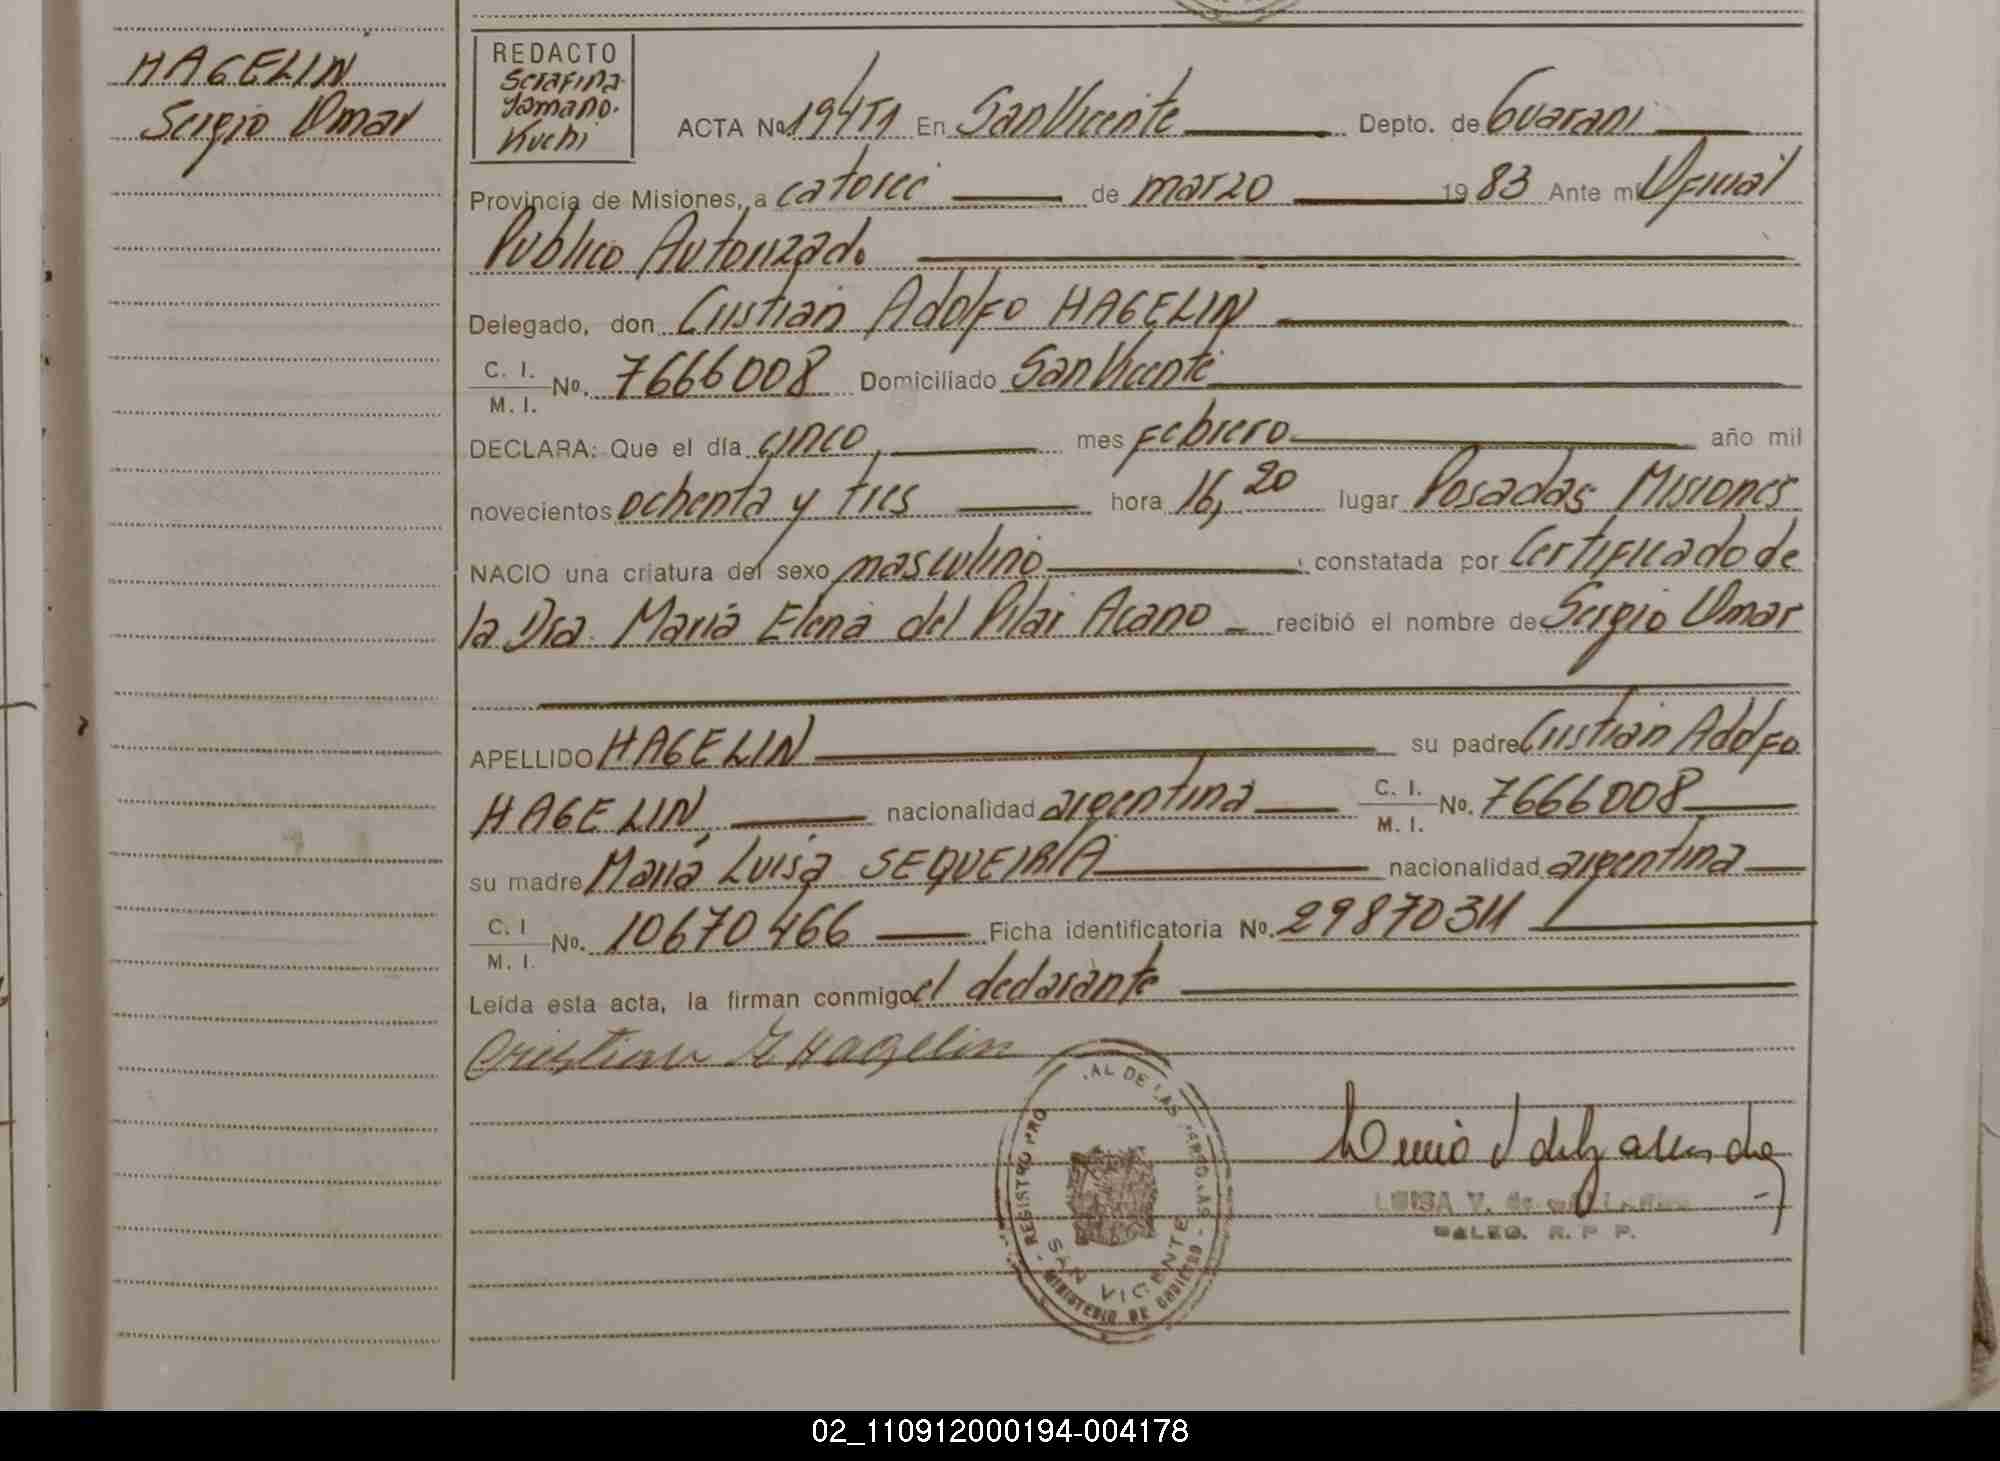 HAGELIN
Sergio Omar
REDACTO
Serafina
Kuchi
ACTA No 194T1 En San Vicente Depto. de Guarani
Provincia de Misiones, a catorce de marzo 1983 Ante mi Oficial
Público Autorizado
Delegado, don Cristian Adolfo HAGELIN
C. I. / M. I. No. 7666008 Domiciliado San Vicente
DECLARA: Que el día cinco, mes febrero año mil
novecientos ochenta y tres hora 16,20 lugar Posadas Misiones
NACIO una criatura del sexo masculino constatada por Certificado de
la Dra. María Elena del Pilar Acano recibió el nombre de Sergio Omar
APELLIDO HAGELIN su padre Cristian Adolfo
HAGELIN, nacionalidad argentina C. I. / M. I. No. 7666008
su madre María Luisa SEQUEIRA nacionalidad argentina
C. I / M. I. No. 10670466 Ficha identificatoria No. 29870311
Leída esta acta, la firman conmigo el declarante
Cristian Hagelin
REGISTRO PRO AL DE LAS
SAN VICENTE
MINISTERIO DE GOBIERNO
LUISA V. de
R. P. P.
02_110912000194-004178